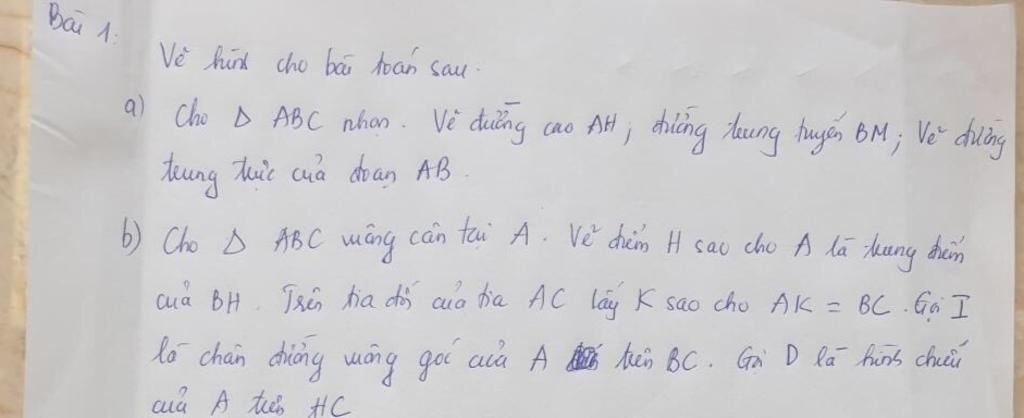 Bài 1:
Vẽ hình cho bài toán sau.
a) Cho Δ ABC nhọn. Vẽ đường cao AH; đường trung tuyến BM; Vẽ đường
trung trực của đoạn AB.
b) Cho Δ ABC vuông cân tại A. Vẽ điểm H sao cho A là trung điểm
của BH. Trên tia đối của tia AC lấy K sao cho AK = BC. Gọi I
là chân đường vuông góc của A trên BC. Gọi D là hình chiếu
của A trên HC